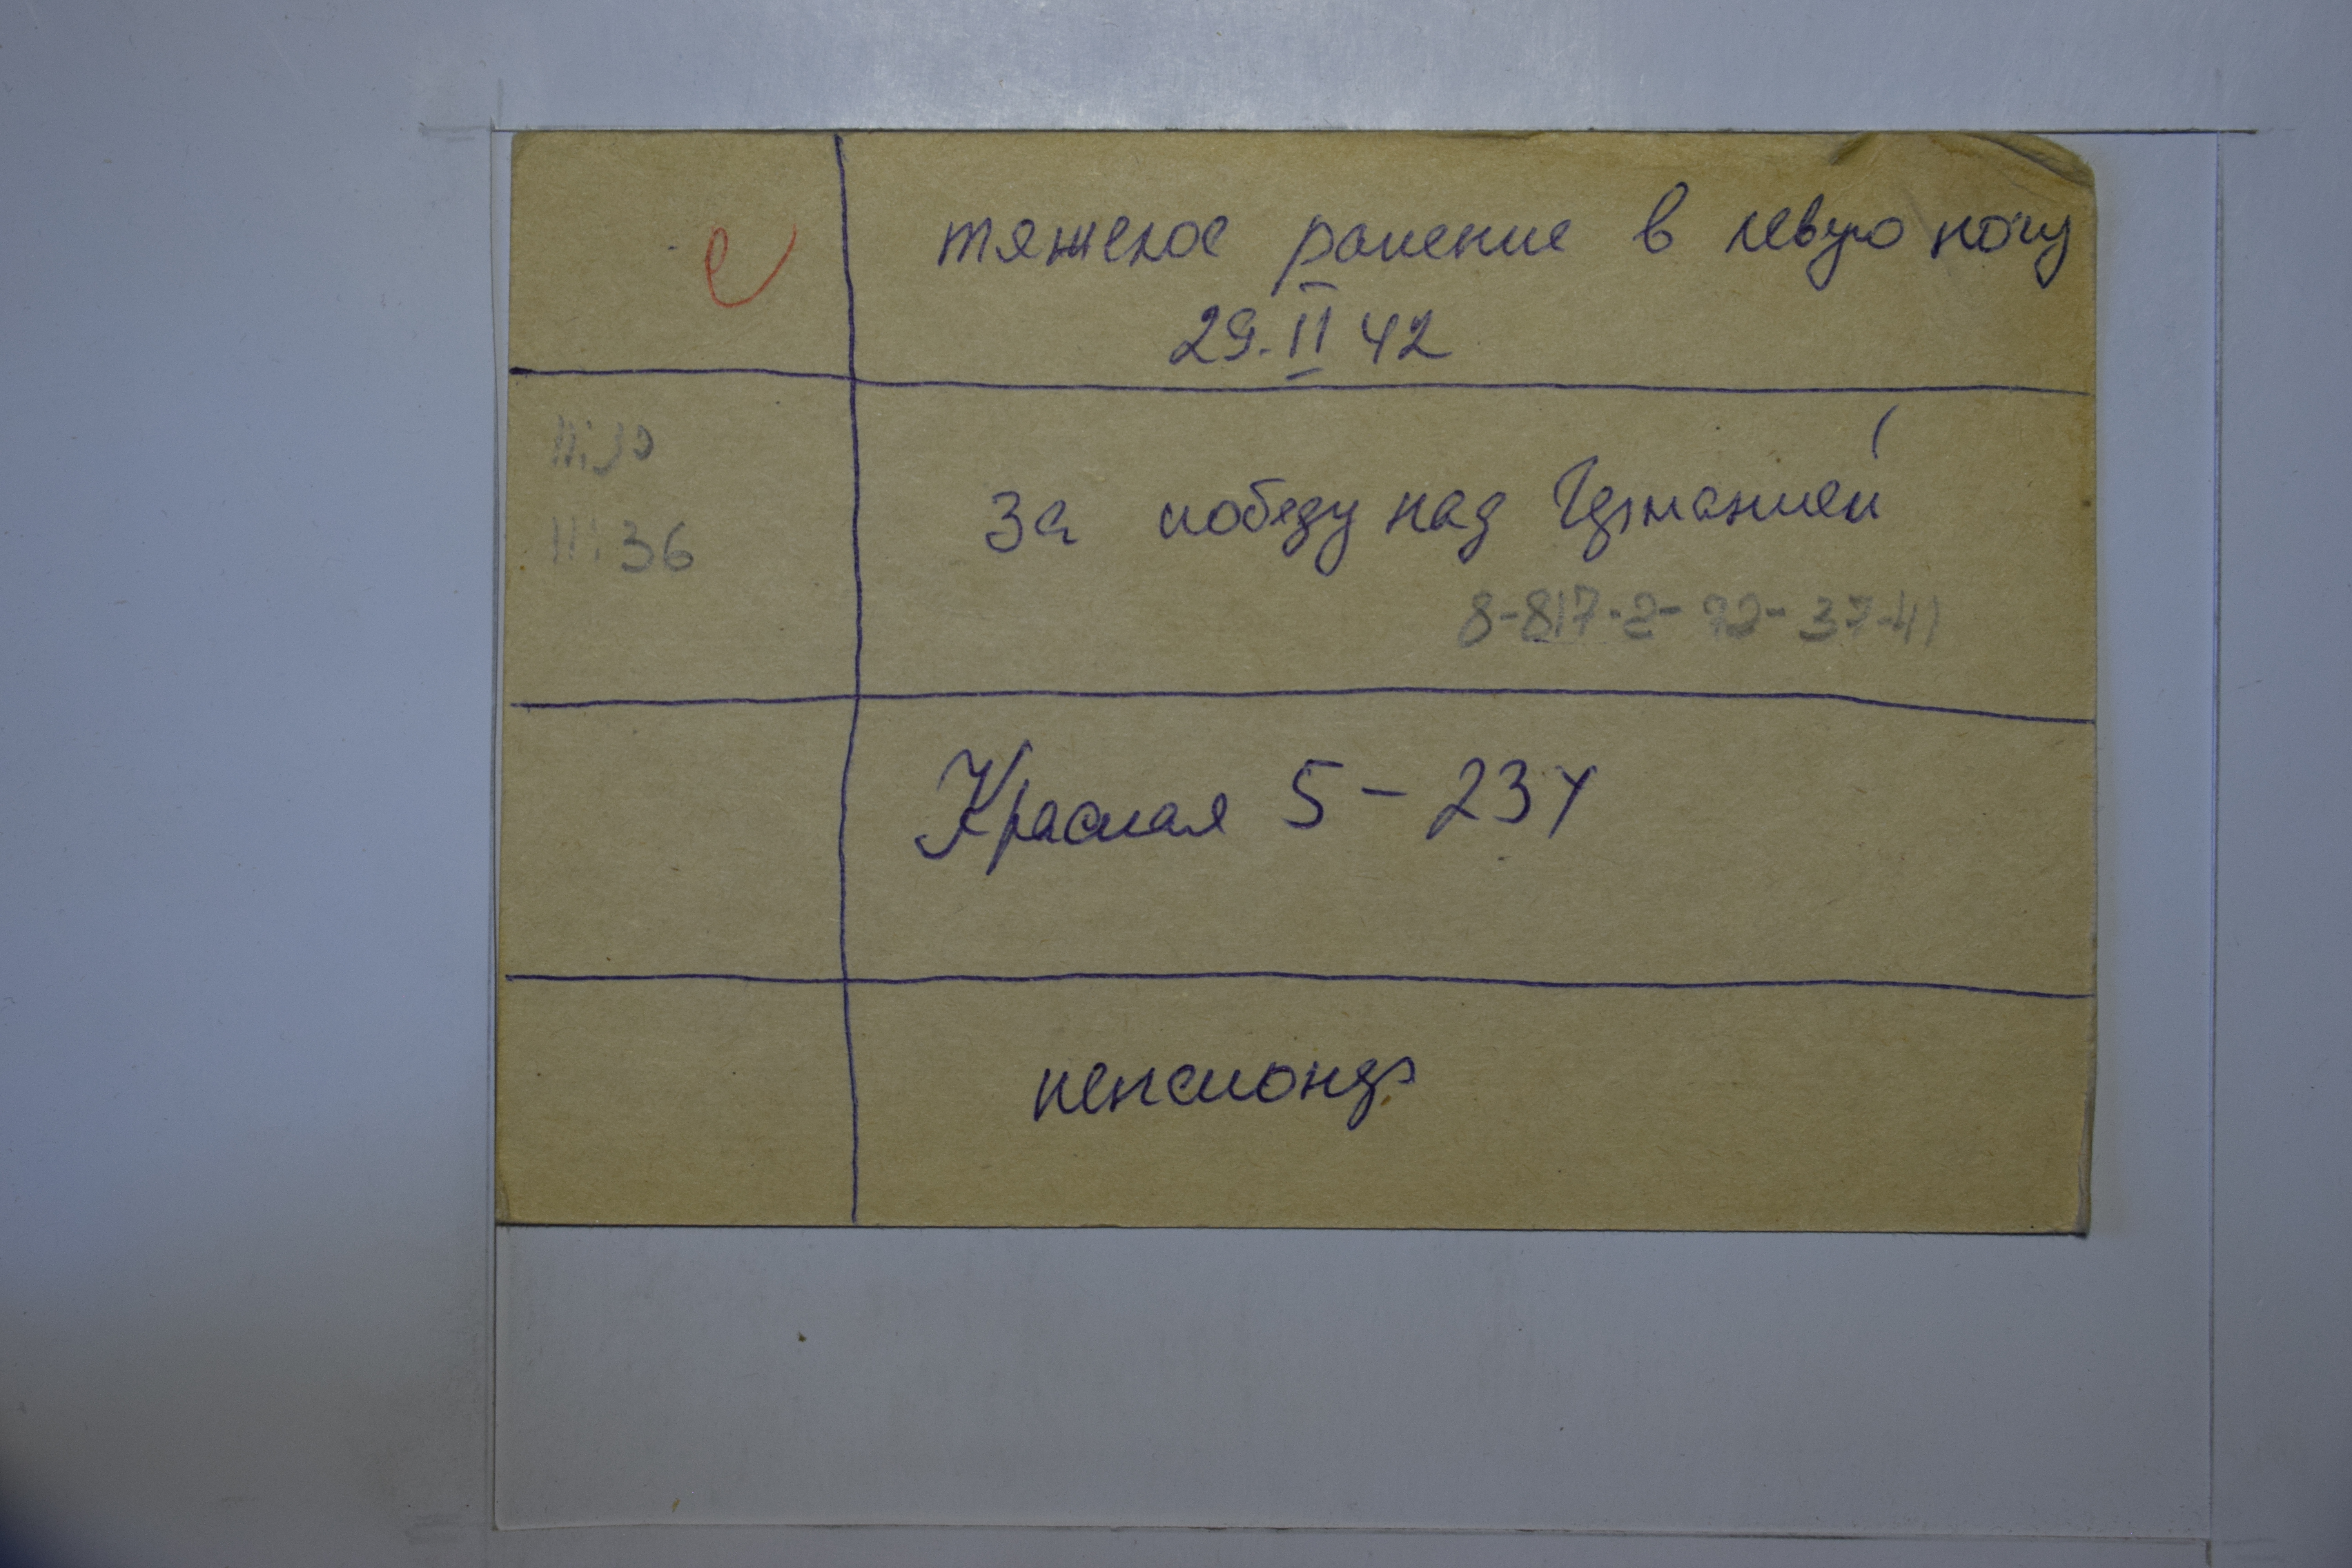 тяжелое ранение в левую ногу
29. II 42
За победу над Германией
8-817-2-92-37-41
36
Красная 5 - 234
пенсионер